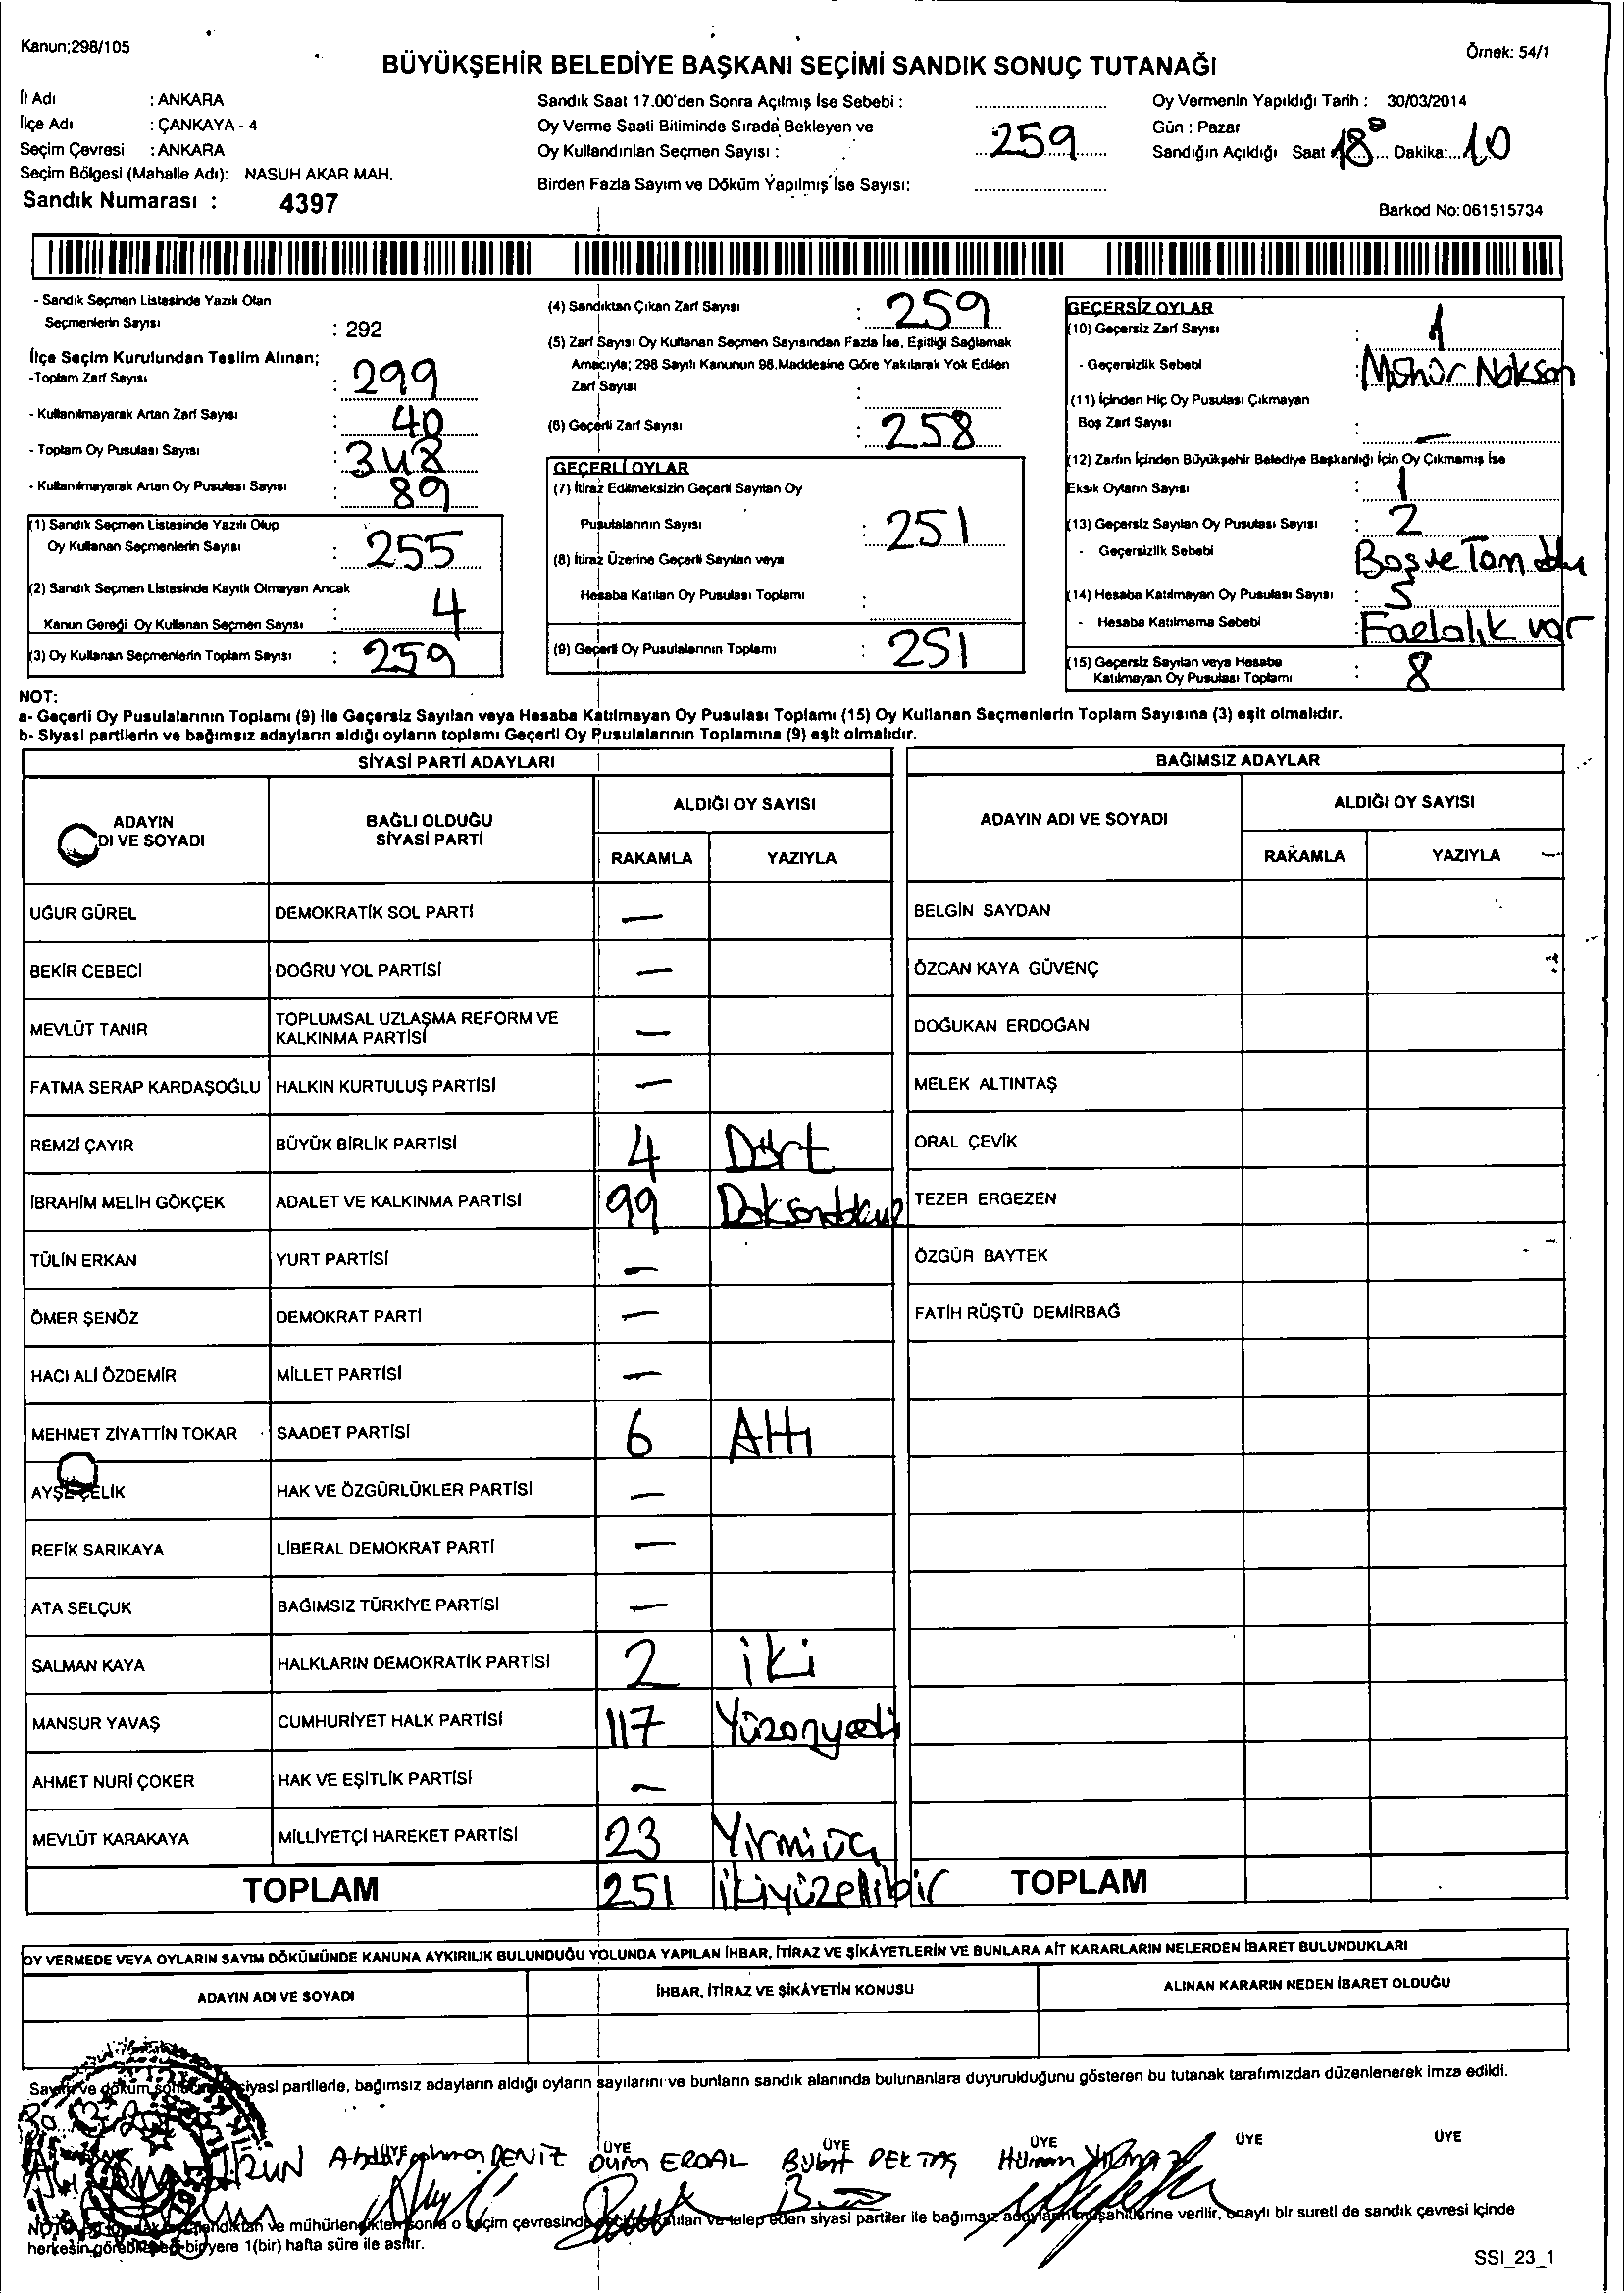 Kanun;298/105
Örnek: 54/1
BÜYÜKŞEHİR BELEDİYE BAŞKANI SEÇİMİ SANDIK SONUÇ TUTANAĞI
İl Adı : ANKARA
İlçe Adı : ÇANKAYA - 4
Seçim Çevresi : ANKARA
Seçim Bölgesi (Mahalle Adı): NASUH AKAR MAH.
Sandık Numarası : 4397
Sandık Saat 17.00'den Sonra Açılmış İse Sebebi :
Oy Verme Saati Bitiminde Sırada Bekleyen ve
Oy Kullandırılan Seçmen Sayısı : 259
Birden Fazla Sayım ve Döküm Yapılmış İse Sayısı:
Oy Vermenin Yapıldığı Tarih : 30/03/2014
Gün : Pazar
Sandığın Açıldığı Saat 18 Dakika: 10
Barkod No:061515734
- Sandık Seçmen Listesinde Yazılı Olan
Seçmenlerin Sayısı : 292
İlçe Seçim Kurulundan Teslim Alınan;
-Toplam Zarf Sayısı : 299
- Kullanılmayarak Artan Zarf Sayısı : 40
- Toplam Oy Pusulası Sayısı : 348
- Kullanılmayarak Artan Oy Pusulası Sayısı : 89
(1) Sandık Seçmen Listesinde Yazılı Olup
Oy Kullanan Seçmenlerin Sayısı : 255
(2) Sandık Seçmen Listesinde Kayıtlı Olmayan Ancak
Kanun Gereği Oy Kullanan Seçmen Sayısı : 4
(3) Oy Kullanan Seçmenlerin Toplam Sayısı : 259
(4) Sandıktan Çıkan Zarf Sayısı : 259
(5) Zarf Sayısı Oy Kullanan Seçmen Sayısından Fazla İse, Eşitliği Sağlamak
Amacıyla; 298 Sayılı Kanunun 98.Maddesine Göre Yakılarak Yok Edilen
Zarf Sayısı :
(6) Geçerli Zarf Sayısı : 258
GEÇERLİ OYLAR
(7) İtiraz Edilmeksizin Geçerli Sayılan Oy
Pusulalarının Sayısı : 251
(8) İtiraz Üzerine Geçerli Sayılan veya
Hesaba Katılan Oy Pusulası Toplamı :
(9) Geçerli Oy Pusulalarının Toplamı : 251
GEÇERSİZ OYLAR
(10) Geçersiz Zarf Sayısı : 1
- Geçersizlik Sebebi : Mühür Noksan
(11) İçinden Hiç Oy Pusulası Çıkmayan
Boş Zarf Sayısı : —
(12) Zarfın İçinden Büyükşehir Belediye Başkanlığı İçin Oy Çıkmamış İse
Eksik Oyların Sayısı : 1
(13) Geçersiz Sayılan Oy Pusulası Sayısı : 2
- Geçersizlik Sebebi Boş ve Tam
(14) Hesaba Katılmayan Oy Pusulası Sayısı : 5
- Hesaba Katılmama Sebebi : Fazlalık var
(15) Geçersiz Sayılan veya Hesaba
Katılmayan Oy Pusulası Toplamı : 8
NOT:
a- Geçerli Oy Pusulalarının Toplamı (9) ile Geçersiz Sayılan veya Hesaba Katılmayan Oy Pusulası Toplamı (15) Oy Kullanan Seçmenlerin Toplam Sayısına (3) eşit olmalıdır.
b- Siyasi partilerin ve bağımsız adayların aldığı oyların toplamı Geçerli Oy Pusulalarının Toplamına (9) eşit olmalıdır.
SİYASİ PARTİ ADAYLARI
ADAYIN
DI VE SOYADI
BAĞLI OLDUĞU
SİYASİ PARTİ
ALDIĞI OY SAYISI
RAKAMLA YAZIYLA
UĞUR GÜREL DEMOKRATİK SOL PARTİ —
BEKİR CEBECİ DOĞRU YOL PARTİSİ —
MEVLÜT TANIR TOPLUMSAL UZLAŞMA REFORM VE
KALKINMA PARTİSİ —
FATMA SERAP KARDAŞOĞLU HALKIN KURTULUŞ PARTİSİ —
REMZİ ÇAYIR BÜYÜK BİRLİK PARTİSİ 4 Dört
İBRAHİM MELİH GÖKÇEK ADALET VE KALKINMA PARTİSİ 99 Doksandokuz
TÜLİN ERKAN YURT PARTİSİ —
ÖMER ŞENÖZ DEMOKRAT PARTİ —
HACI ALİ ÖZDEMİR MİLLET PARTİSİ —
MEHMET ZİYATTİN TOKAR SAADET PARTİSİ 6 Altı
AYŞE ÇELİK HAK VE ÖZGÜRLÜKLER PARTİSİ —
REFİK SARIKAYA LİBERAL DEMOKRAT PARTİ —
ATA SELÇUK BAĞIMSIZ TÜRKİYE PARTİSİ —
SALMAN KAYA HALKLARIN DEMOKRATİK PARTİSİ 2 iki
MANSUR YAVAŞ CUMHURİYET HALK PARTİSİ 117 Yüzonyedi
AHMET NURİ ÇOKER HAK VE EŞİTLİK PARTİSİ —
MEVLÜT KARAKAYA MİLLİYETÇİ HAREKET PARTİSİ 23 Yirmiüç
TOPLAM 251 ikiyüzellibir
BAĞIMSIZ ADAYLAR
ADAYIN ADI VE SOYADI
ALDIĞI OY SAYISI
RAKAMLA YAZIYLA
BELGİN SAYDAN
ÖZCAN KAYA GÜVENÇ
DOĞUKAN ERDOĞAN
MELEK ALTINTAŞ
ORAL ÇEVİK
TEZER ERGEZEN
ÖZGÜR BAYTEK
FATİH RÜŞTÜ DEMİRBAĞ
TOPLAM
OY VERMEDE VEYA OYLARIN SAYIM DÖKÜMÜNDE KANUNA AYKIRILIK BULUNDUĞU YOLUNDA YAPILAN İHBAR, İTİRAZ VE ŞİKÂYETLERİN VE BUNLARA AİT KARARLARIN NELERDEN İBARET BULUNDUKLARI
ADAYIN ADI VE SOYADI
İHBAR, İTİRAZ VE ŞİKÂYETİN KONUSU
ALINAN KARARIN NEDEN İBARET OLDUĞU
Sayım ve döküm siyasi partilerle, bağımsız adayların aldığı oyların sayılarını ve bunların sandık alanında bulunanlara duyurulduğunu gösteren bu tutanak tarafımızdan düzenlenerek imza edildi.
ÜYE ÜYE ÜYE ÜYE ÜYE ÜYE
Abdurrahman DENİZ ERDAL PEKTAŞ
ve mühürlendikten sonra o seçim çevresinde katılan ve talep eden siyasi partiler ile bağımsız adayların müşahitlerine verilir, onaylı bir sureti de sandık çevresi içinde
herkesin görebileceği bir yere 1(bir) hafta süre ile asılır.
SSI_23_1